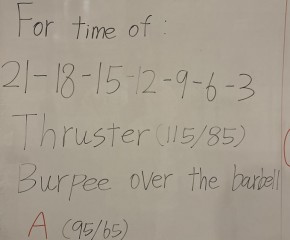 For time of :
21-18-15-12-9-6-3
Thruster (115/85)
Burpee over the barbell
A (95/65)